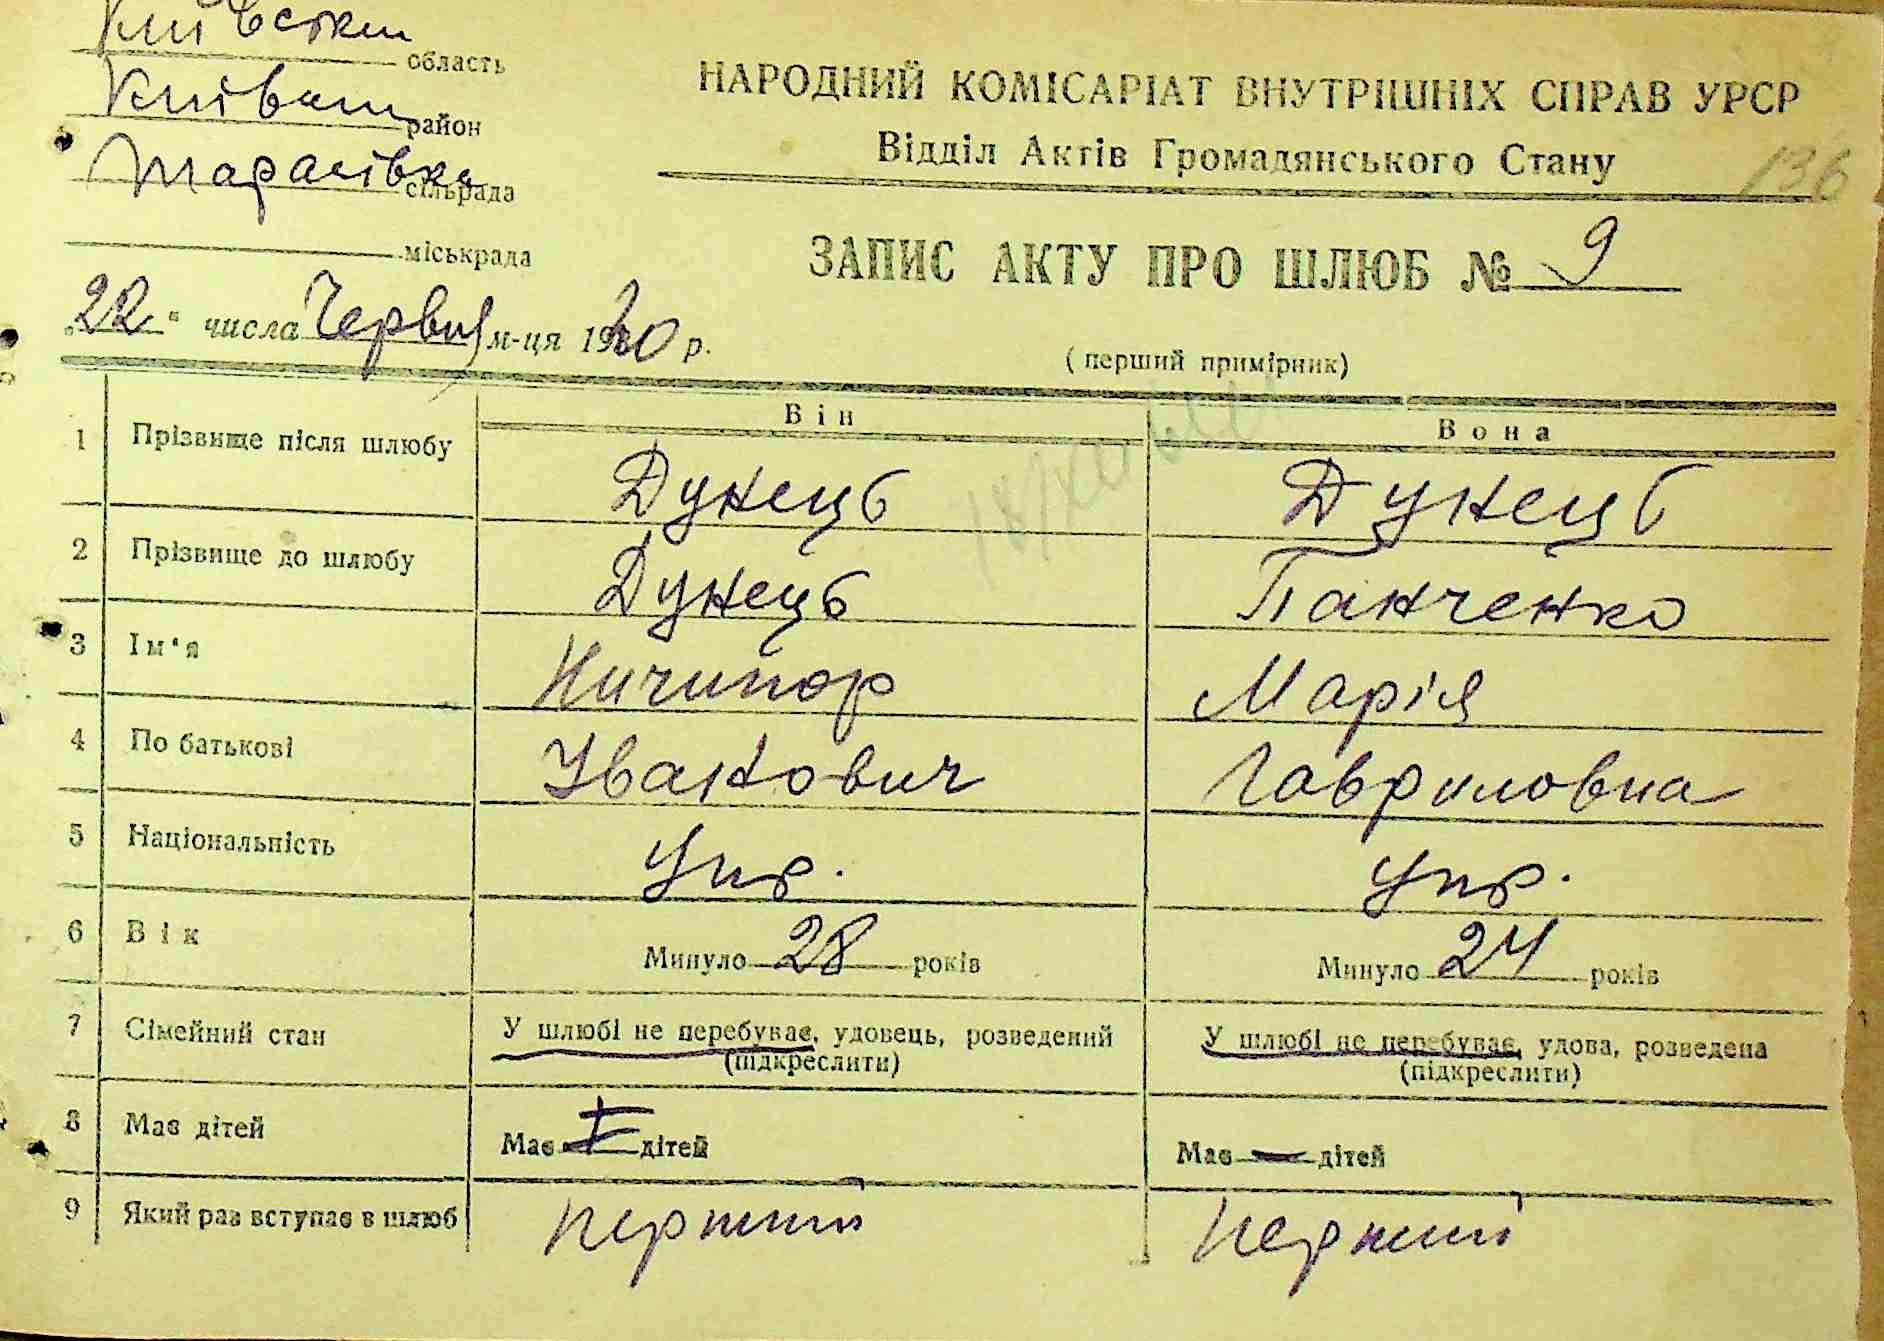 Київськи область
Київськ район
Тарасівка сільрада
міськрада
„22“ числа Червня м-ця 1940 р.
НАРОДНИЙ КОМІСАРІАТ ВНУТРІШНІХ СПРАВ УРСР
Відділ Актів Громадянського Стану
136
ЗАПИС АКТУ ПРО ШЛЮБ № 9
(перший примірник)
Він Вона
1 Прізвище після шлюбу Дунець Дунець
2 Прізвище до шлюбу Дунець Панченко
3 Ім'я Ничипор Марія
4 По батькові Іванович Гавриловна
5 Національність Укр. Укр.
6 Вік Минуло 28 років Минуло 24 років
7 Сімейний стан У шлюбі не перебуває, удовець, розведений У шлюбі не перебуває, удова, розведена
(підкреслити) (підкреслити)
8 Має дітей Має дітей Має — дітей
9 Який раз вступає в шлюб перший перший